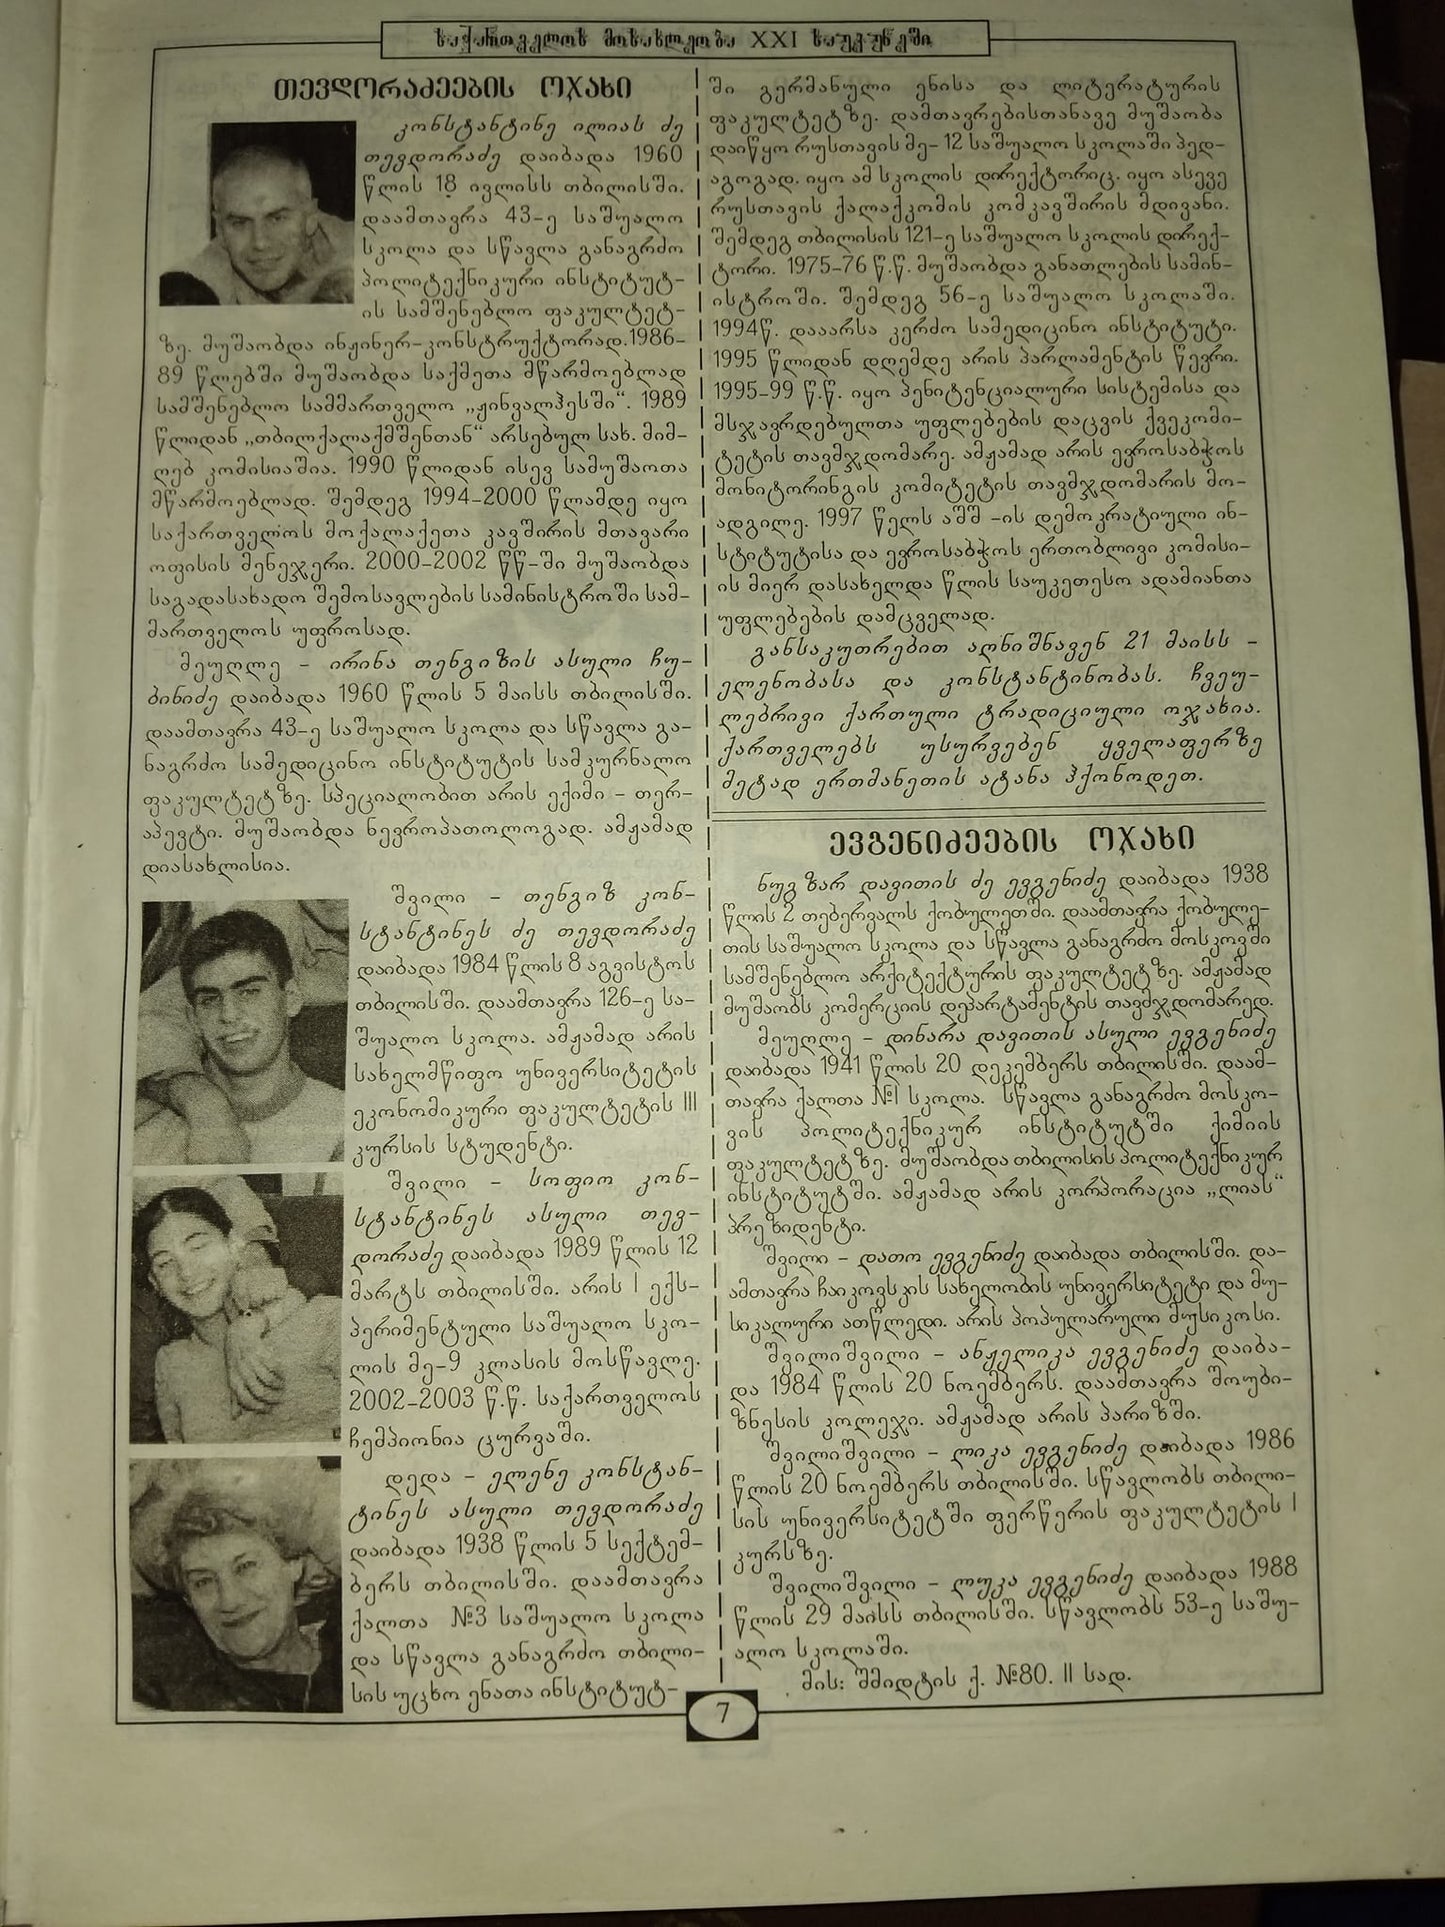 საქართველოს მოსახლეობა XXI საუკუნეში
თევდორაძეების ოჯახი
კონსტანტინე ილიას ძე
თევდორაძე დაიბადა 1960
წლის 18 ივლისს თბილისში.
დაამთავრა 43-ე საშუალო
სკოლა და სწავლა განაგრძო
პოლიტექნიკური ინსტიტუტ-
ის სამშენებლო ფაკულტეტ-
ზე. მუშაობდა ინჟინერ-კონსტრუქტორად.1986-
89 წლებში მუშაობდა საქმეთა მწარმოებლად
სამშენებლო სამმართველო „ჟინვალჰესში“. 1989
წლიდან „თბილქალაქმშენთან“ არსებულ სახ. მიმ-
ღებ კომისიაშია. 1990 წლიდან ისევ სამუშაოთა
მწარმოებლად. შემდეგ 1994-2000 წლამდე იყო
საქართველოს მოქალაქეთა კავშირის მთავარი
ოფისის მენეჯერი. 2000-2002 წწ-ში მუშაობდა
საგადასახადო შემოსავლების სამინისტროში სამ-
მართველოს უფროსად.
მეუღლე - ირინა თენგიზის ასული ჩუ-
ბინიძე დაიბადა 1960 წლის 5 მაისს თბილისში.
დაამთავრა 43-ე საშუალო სკოლა და სწავლა გა-
ნაგრძო სამედიცინო ინსტიტუტის სამკურნალო
ფაკულტეტზე. სპეციალობით არის ექიმი - თერ-
აპევტი. მუშაობდა ნევროპათოლოგად. ამჟამად
დიასახლისია.
შვილი - თენგიზ კონ-
სტანტინეს ძე თევდორაძე
დაიბადა 1984 წლის 8 აგვისტოს
თბილისში. დაამთავრა 126-ე სა-
შუალო სკოლა. ამჟამად არის
სახელმწიფო უნივერსიტეტის
ეკონომიკური ფაკულტეტის III
კურსის სტუდენტი.
შვილი - სოფიო კონ-
სტანტინეს ასული თევ-
დორაძე დაიბადა 1989 წლის 12
მარტს თბილისში. არის I ექს-
პერიმენტული საშუალო სკო-
ლის მე-9 კლასის მოსწავლე.
2002-2003 წ.წ. საქართველოს
ჩემპიონია ცურვაში.
დედა - ელენე კონსტან-
ტინეს ასული თევდორაძე
დაიბადა 1938 წლის 5 სექტემ-
ბერს თბილისში. დაამთავრა
ქალთა №3 საშუალო სკოლა
და სწავლა განაგრძო თბილი-
სის უცხო ენათა ინსტიტუტ-
ში გერმანული ენისა და ლიტერატურის
ფაკულტეტზე. დამთავრებისთანავე მუშაობა
დაიწყო რუსთავის მე- 12 საშუალო სკოლაში პედ-
აგოგად. იყო ამ სკოლის დირექტორიც. იყო ასევე
რუსთავის ქალაქკომის კომკავშირის მდივანი.
შემდეგ თბილისის 121-ე საშუალო სკოლის დირექ-
ტორი. 1975-76 წ.წ. მუშაობდა განათლების სამინ-
ისტროში. შემდეგ 56-ე საშუალო სკოლაში.
1994წ. დააარსა კერძო სამედიცინო ინსტიტუტი.
1995 წლიდან დღემდე არის პარლამენტის წევრი.
1995-99 წ.წ. იყო პენიტენციალური სისტემისა და
მსჯავრდებულთა უფლებების დაცვის ქვეკომი-
ტეტის თავმჯდომარე. ამჟამად არის ევროსაბჭოს
მონიტორინგის კომიტეტის თავმჯდომარის მო-
ადგილე. 1997 წელს აშშ -ის დემოკრატიული ინ-
სტიტუტისა და ევროსაბჭოს ერთობლივი კომისი-
ის მიერ დასახელდა წლის საუკეთესო ადამიანთა
უფლებების დამცველად.
განსაკუთრებით აღნიშნავენ 21 მაისს -
ელენობასა და კონსტანტინობას. ჩვეუ-
ლებრივი ქართული ტრადიციული ოჯახია.
ქართველებს უსურვებენ ყველაფერზე
მეტად ერთმანეთის ატანა ჰქონოდეთ.
ევგენიძეების ოჯახი
ნუგზარ დავითის ძე ევგენიძე დაიბადა 1938
წლის 2 თებერვალს ქობულეთში. დაამთავრა ქობულე-
თის საშუალო სკოლა და სწავლა განაგრძო მოსკოვში
სამშენებლო არქიტექტურის ფაკულტეტზე. ამჟამად
მუშაობს კომერციის დეპარტამენტის თავმჯდომარედ.
მეუღლე - დინარა დავითის ასული ევგენიძე
დაიბადა 1941 წლის 20 დეკემბერს თბილისში. დაამ-
თავრა ქალთა №1 სკოლა. სწავლა განაგრძო მოსკო-
ვის პოლიტექნიკურ ინსტიტუტში ქიმიის
ფაკულტეტზე. მუშაობდა თბილისის პოლიტექნიკურ
ინსტიტუტში. ამჟამად არის კორპორაცია „ლიას“
პრეზიდენტი.
შვილი - დათო ევგენიძე დაიბადა თბილისში. და-
ამთავრა ჩაიკოვსკის სახელობის უნივერსიტეტი და მუ-
სიკალური ათწლედი. არის პოპულარული მუსიკოსი.
შვილიშვილი - ანჟელიკა ევგენიძე დაიბა-
და 1984 წლის 20 ნოემბერს. დაამთავრა შოუბი-
ზნესის კოლეჯი. ამჟამად არის პარიზში.
შვილიშვილი - ლიკა ევგენიძე დაიბადა 1986
წლის 20 ნოემბერს თბილისში. სწავლობს თბილი-
სის უნივერსიტეტში ფერწერის ფაკულტეტის I
კურსზე.
შვილიშვილი - ლუკა ევგენიძე დაიბადა 1988
წლის 29 მაისს თბილისში. სწავლობს 53-ე საშუ-
ალო სკოლაში.
მის: შმიდტის ქ. №80. II სად.
7